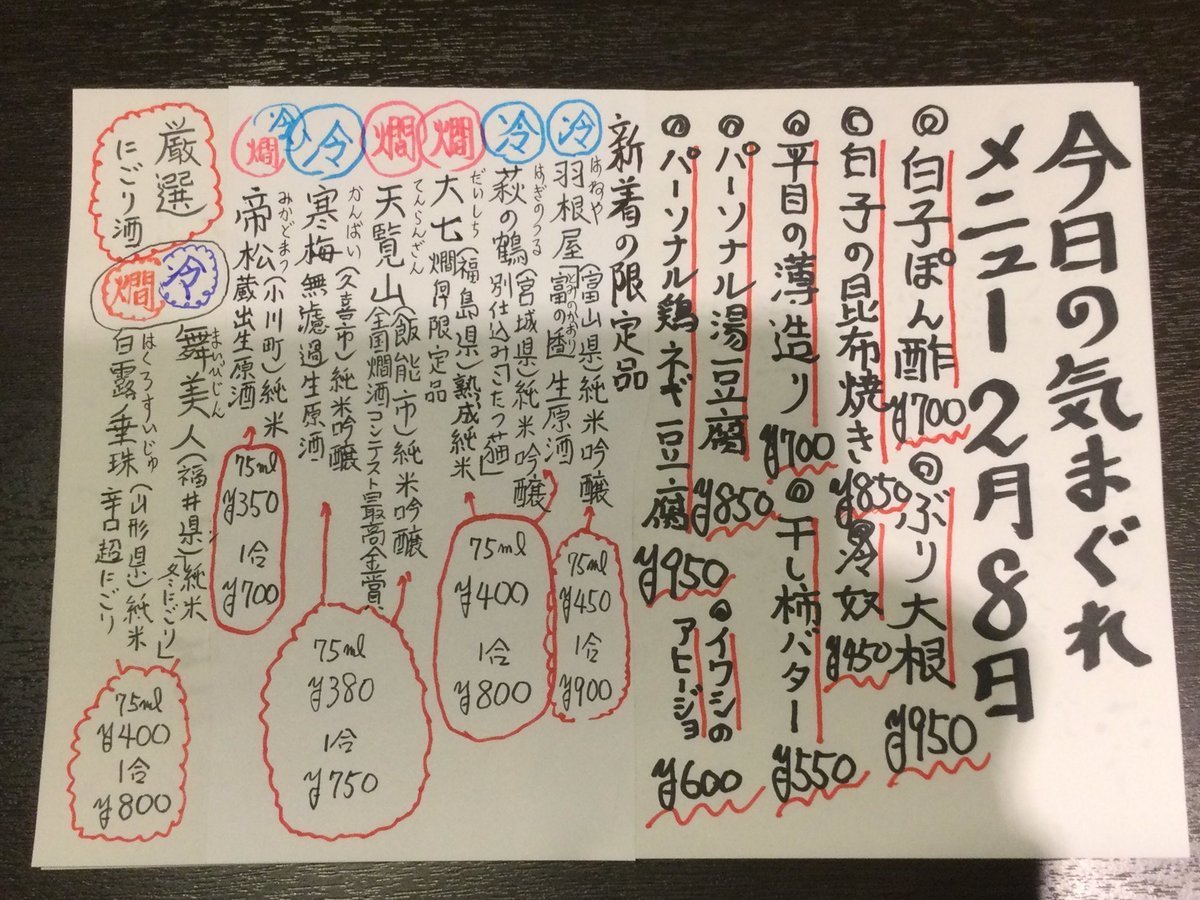 今日の気まぐれ
メニュー 2月8日
◎白子ぽん酢 ¥700
◎ぶり大根 ¥950
◎白子の昆布焼き ¥850
冷奴 ¥450
◎平目の薄造り ¥700
◎干し柿バター ¥550
◎パーソナル湯豆腐 ¥850
◎パーソナル鶏ネギ豆腐 ¥950
◎イワシの
アヒージョ
¥600
新着の限定品
冷 羽根屋(富山県)純米吟醸
はねや
「富の香」生原酒
とみのかおり
75ml
¥450
1合
¥900
冷 萩の鶴(宮城県)純米吟醸
はぎのつる
別仕込み「こたつ猫」
燗 大七(福島県)熟成純米
だいしち
燗付限定品
75ml
¥400
1合
¥800
燗 天覧山(飯能市)純米吟醸
てんらんざん
全国燗酒コンテスト最高金賞
冷 寒梅(久喜市)純米吟醸
かんばい
無濾過生原酒
75ml
¥380
1合
¥750
冷 燗 帝松(小川町)純米
みかどまつ
蔵出生原酒
75ml
¥350
1合
¥700
厳選
にごり酒
冷 燗
舞美人(福井県)純米
まいびじん
「冬にごり」
白露垂珠(山形県)純米
はくろすいしゅ
辛口超にごり
75ml
¥400
1合
¥800